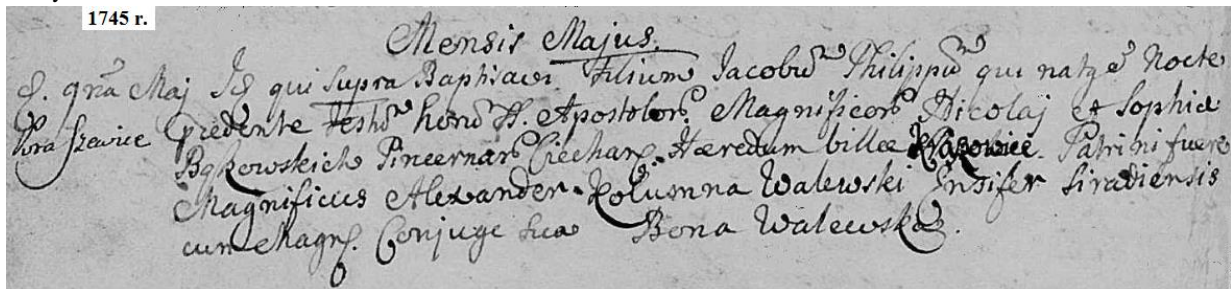 1745 r.
Mensis Majus.
qui supra Baptisavi Filium Jacobū Philippū qui natꝰ ē Nocte
honū SS. Apostolor. Magnificor. Nicolaj et Sophiæ
Bąkowskich Pincernar. Ciechaȓ. Hæredum villæ Patrini fuere
Magnificus Alexander Kolumna Walewski Ensifer Siradiensis
cum Magnf. Conjuge sua Bona Walewska.